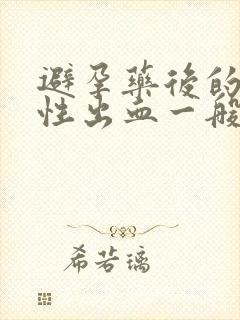 避孕藥後的
性出血一般
希若璃